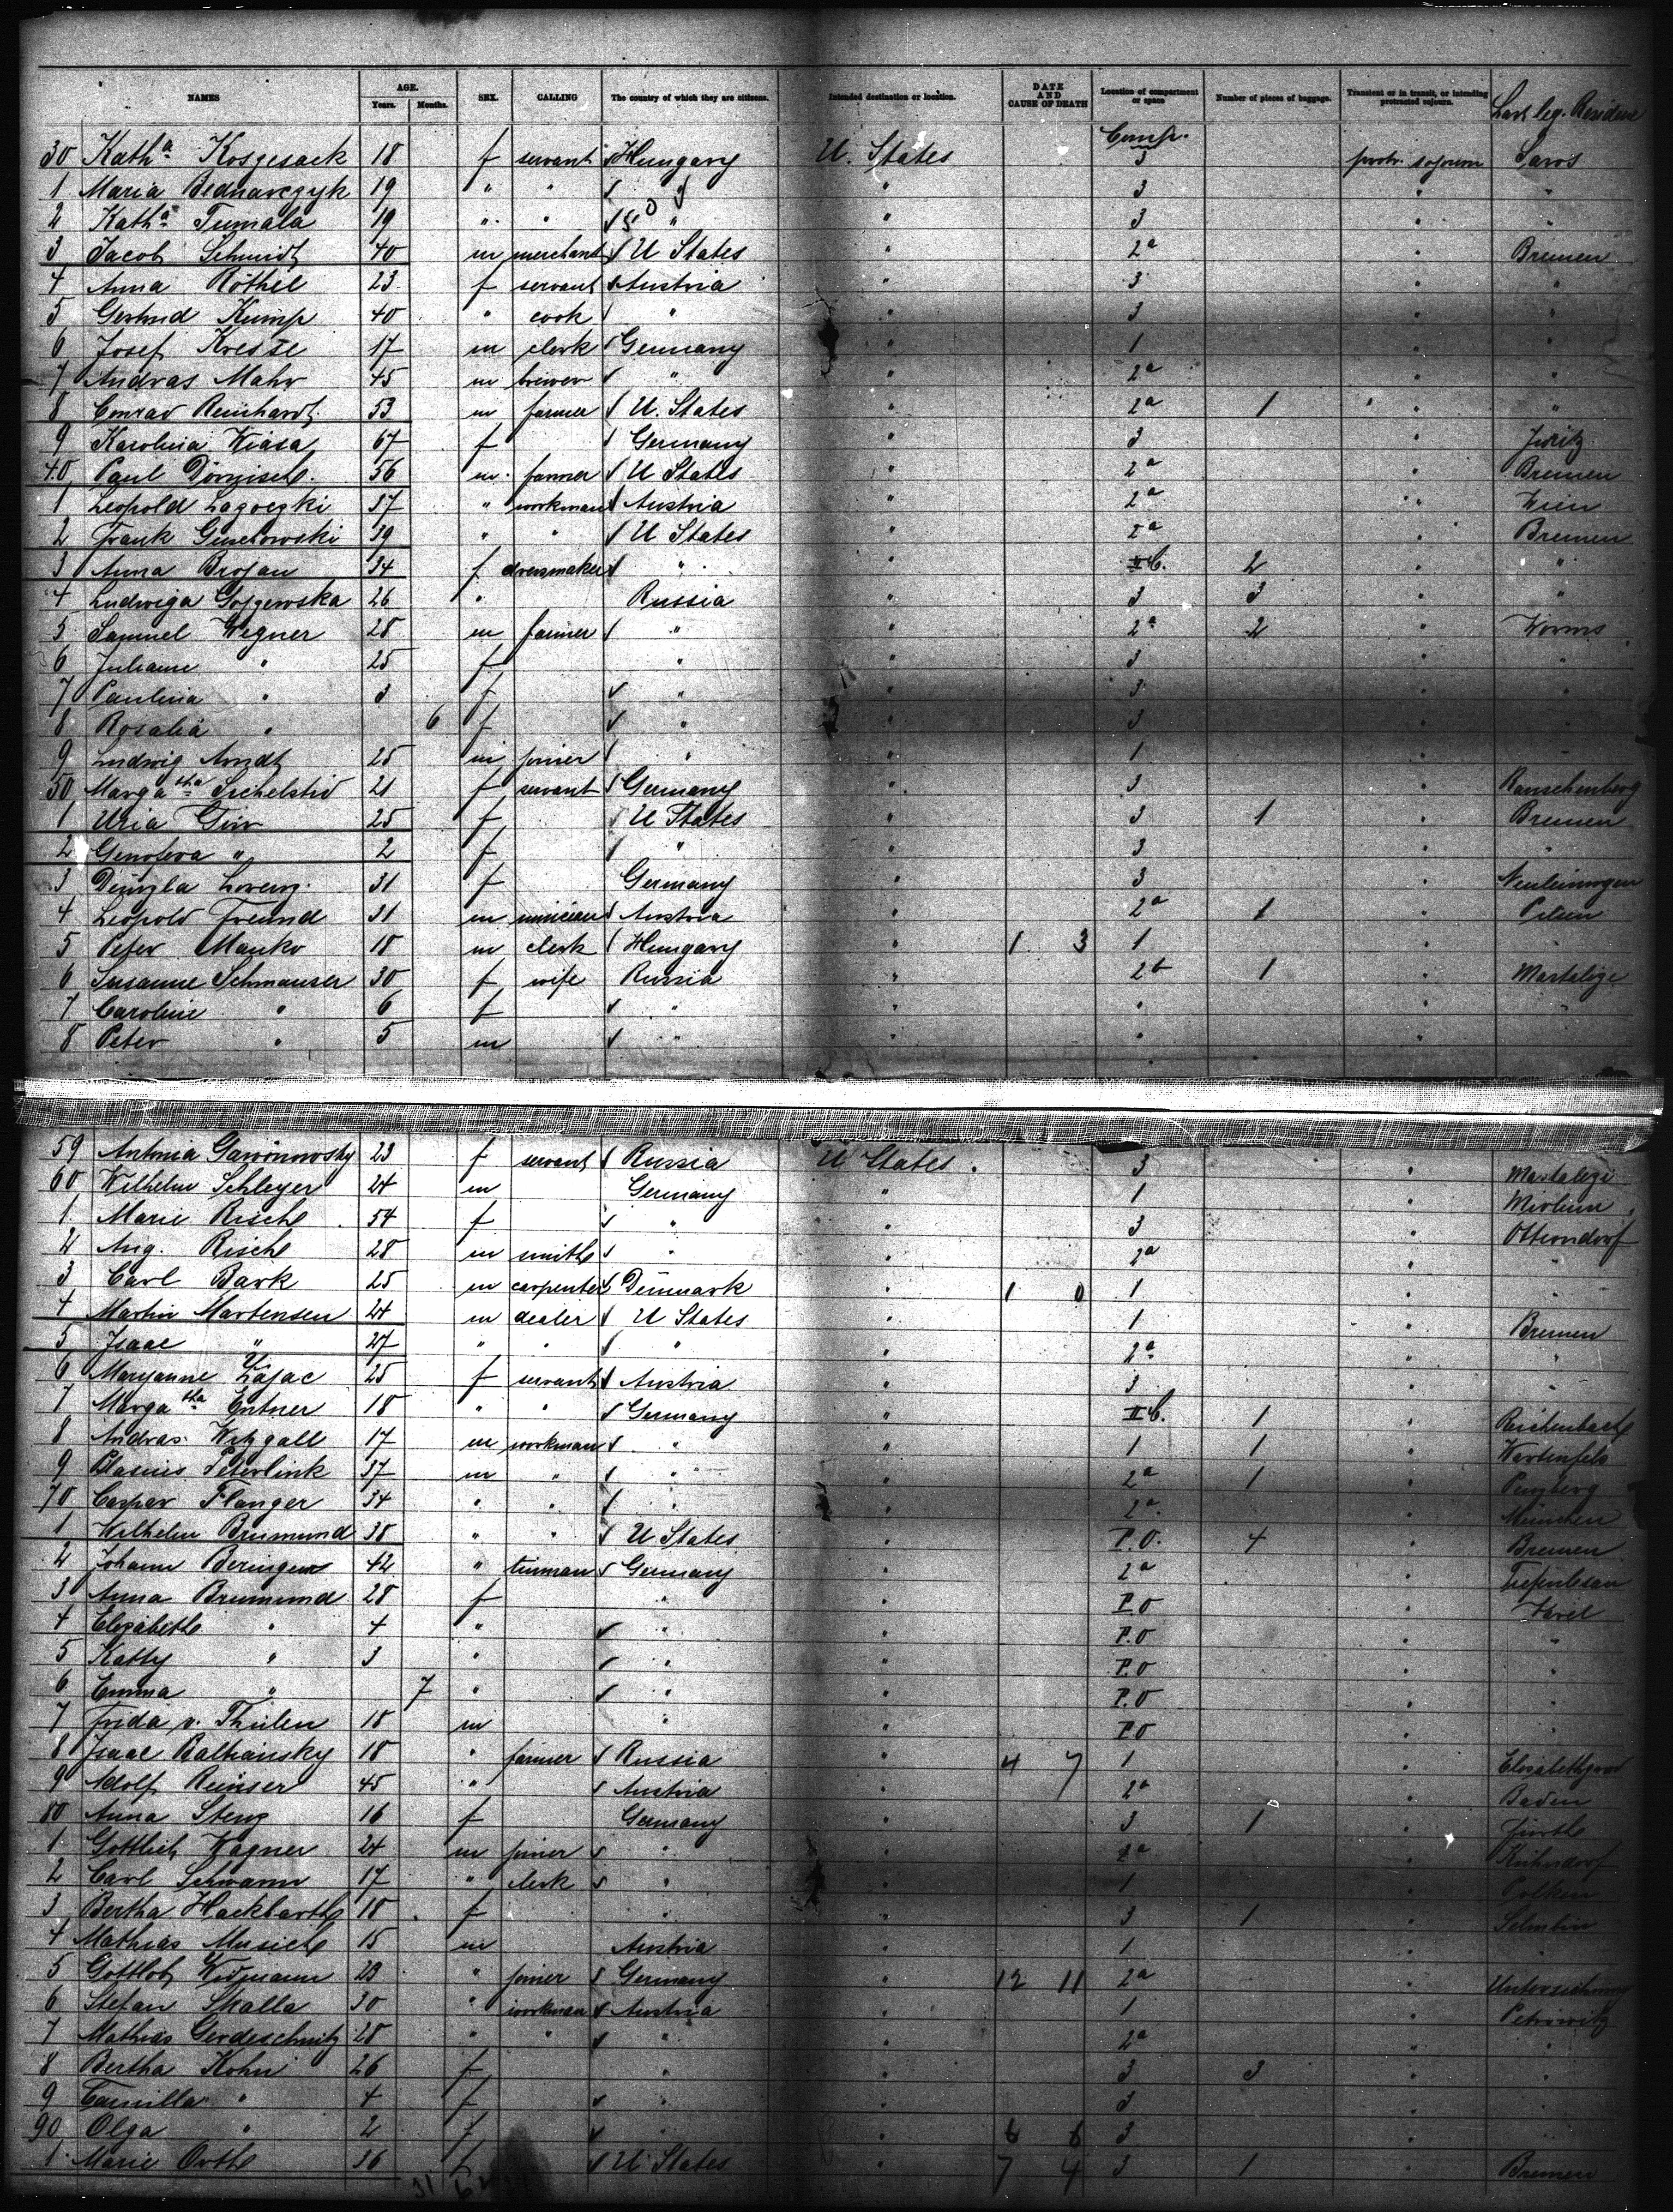 NAMES AGE. Years. Months. SEX. CALLING The country of which they are citizens. Intended destination or location. DATE AND CAUSE OF DEATH Location of compartment or space Number of pieces of baggage. Transient or in transit, or intending protracted sojourn. Last leg. Residence
30 Kath a Kosgesack 18 f servant Hungary U. States Comp. 3 protr. sojourn Saros
1 Maria Bednarczyk 19 " " " " 3 " "
2 Kath a Tumala 19 " " " " 3 " "
3 Jacob Schmidt 40 m merchant U States " 2a " Bremen
4 Anna Röthel 23 f servant Austria " 3 " "
5 Gertrud Kump 40 " cook " " 3 " "
6 Josef Kresse 17 m clerk Germany " 1 " "
7 Andras Mahr 45 m brewer " " 2a " "
8 Conrad Reinhardt 53 m farmer U. States " 2a 1 " "
9 Karolina Kiasa 67 f Germany " 3 "
40 Paul 56 m farmer U States " 2a " Bremen
1 Leopold 37 " workman Austria " 2a " Wien
2 Frank 39 " " U States " 2a " Bremen
3 Anna Brojan 34 f dressmaker " " II C. 2 " "
4 Ludwiga Gojzewska 26 " Russia " 3 3 " "
5 Samuel Wegner 28 m farmer " " 2a 2 " Worms
6 Juliane " 25 f " " 3 " "
7 Paulina " 3 f " " 3 " "
8 Rosalia " 6 f " " 3 "
9 Ludwig Arndt 25 m joiner " " 1 "
50 Marga tha Sichelstid 21 f servant Germany " 3 " Rauschenberg
1 25 f U States " 3 1 " Bremen
2 Genofeva " 2 f " " 3 " "
3 Lorenz 31 f Germany " 3 " Neuleiningen
4 Leopold Freund 31 m Austria " 2a 1 " Pilsen
5 Peter Manko 18 m clerk Hungary " 1 3 1 " "
6 Susanne Schmauser 30 f wife Russia " 2b 1 " Mastalize
7 Caroline " 6 f " " " "
8 Peter " 5 m " " " "
59 Antonia Gawönnowsky 23 f servant Russia U States. 3 " Mastalegi
60 Wilhelm Schleyer 24 m Germany " 1 "
1 Marie Risch 54 f " " 3 " Otterndorf
2 Aug. Risch 28 m smith " " 2a " "
3 Carl Bark 25 m carpenter Denmark " 1 0 1 " "
4 Martin Martensen 24 m dealer U States " 1 " Bremen
5 Isaac " 27 " " " " 2a " "
6 Maryanne Zajac 25 f servant Austria " 3 " "
7 Marga tha Entner 18 " " Germany " II C. 1 " Reichenbach
8 Andras Witzgall 17 m workman " " 1 1 " Wartenfels
9 Peterlink 37 m " " " 2a 1 " Penzberg
70 Caspar Flanger 34 " " " " 2a " München
1 Wilhelm Brumund 38 " " U States " P.O. 4 " Bremen
2 Johann 42 " tinman Germany " 2a "
3 Anna Brumund 28 f " " P.O " Varel
4 Elisabeth " 4 " " " P.O " "
5 Katty " 3 " " " P.O " "
6 Emma " 7 " " " P.O " "
7 Frida v. Thülen 18 m " " P.O " "
8 Isaac Baltiansky 18 " farmer Russia " 4 7 1 " Elisabethgrad
9 Adolf Reinser 45 " Austria " 2a " Baden
80 Anna Steng 16 f Germany " 3 1 " Fürth
1 Gottlieb Wagner 24 m joiner " " 2a " Kühndorf
2 Carl Schwann 17 " clerk " " 1 "
3 Bertha Hackbarth 18 f " " 3 1 " Schubin
4 Mathias Musich 15 m Austria " 1 " "
5 Gottlob Widmann 29 " joiner Germany " 12 11 2a "
6 Stefan Skalla 30 " workman Austria " 1 " Petrowitz
7 Mathias Gerdeschnitz 28 " " " " 2a " "
8 Bertha Kohn 26 f " " 3 3 " "
9 Camilla " 4 f " " 3 "
90 Olga " 2 f " " 6 6 3 "
1 Marie Orth 36 f U States " 7 4 3 1 " Bremen